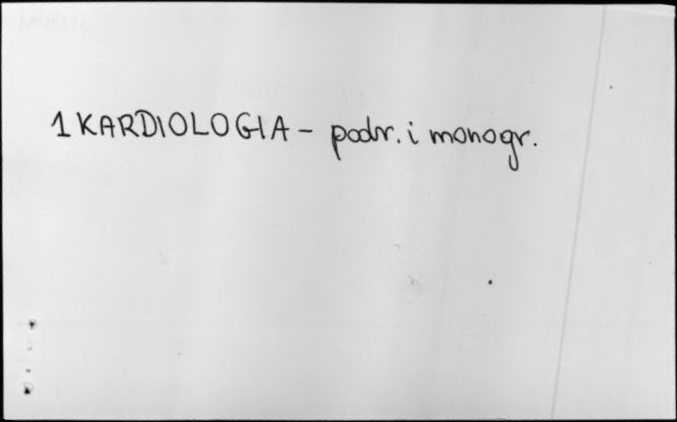 1 KARDIOLOGIA - podr. i monogr.